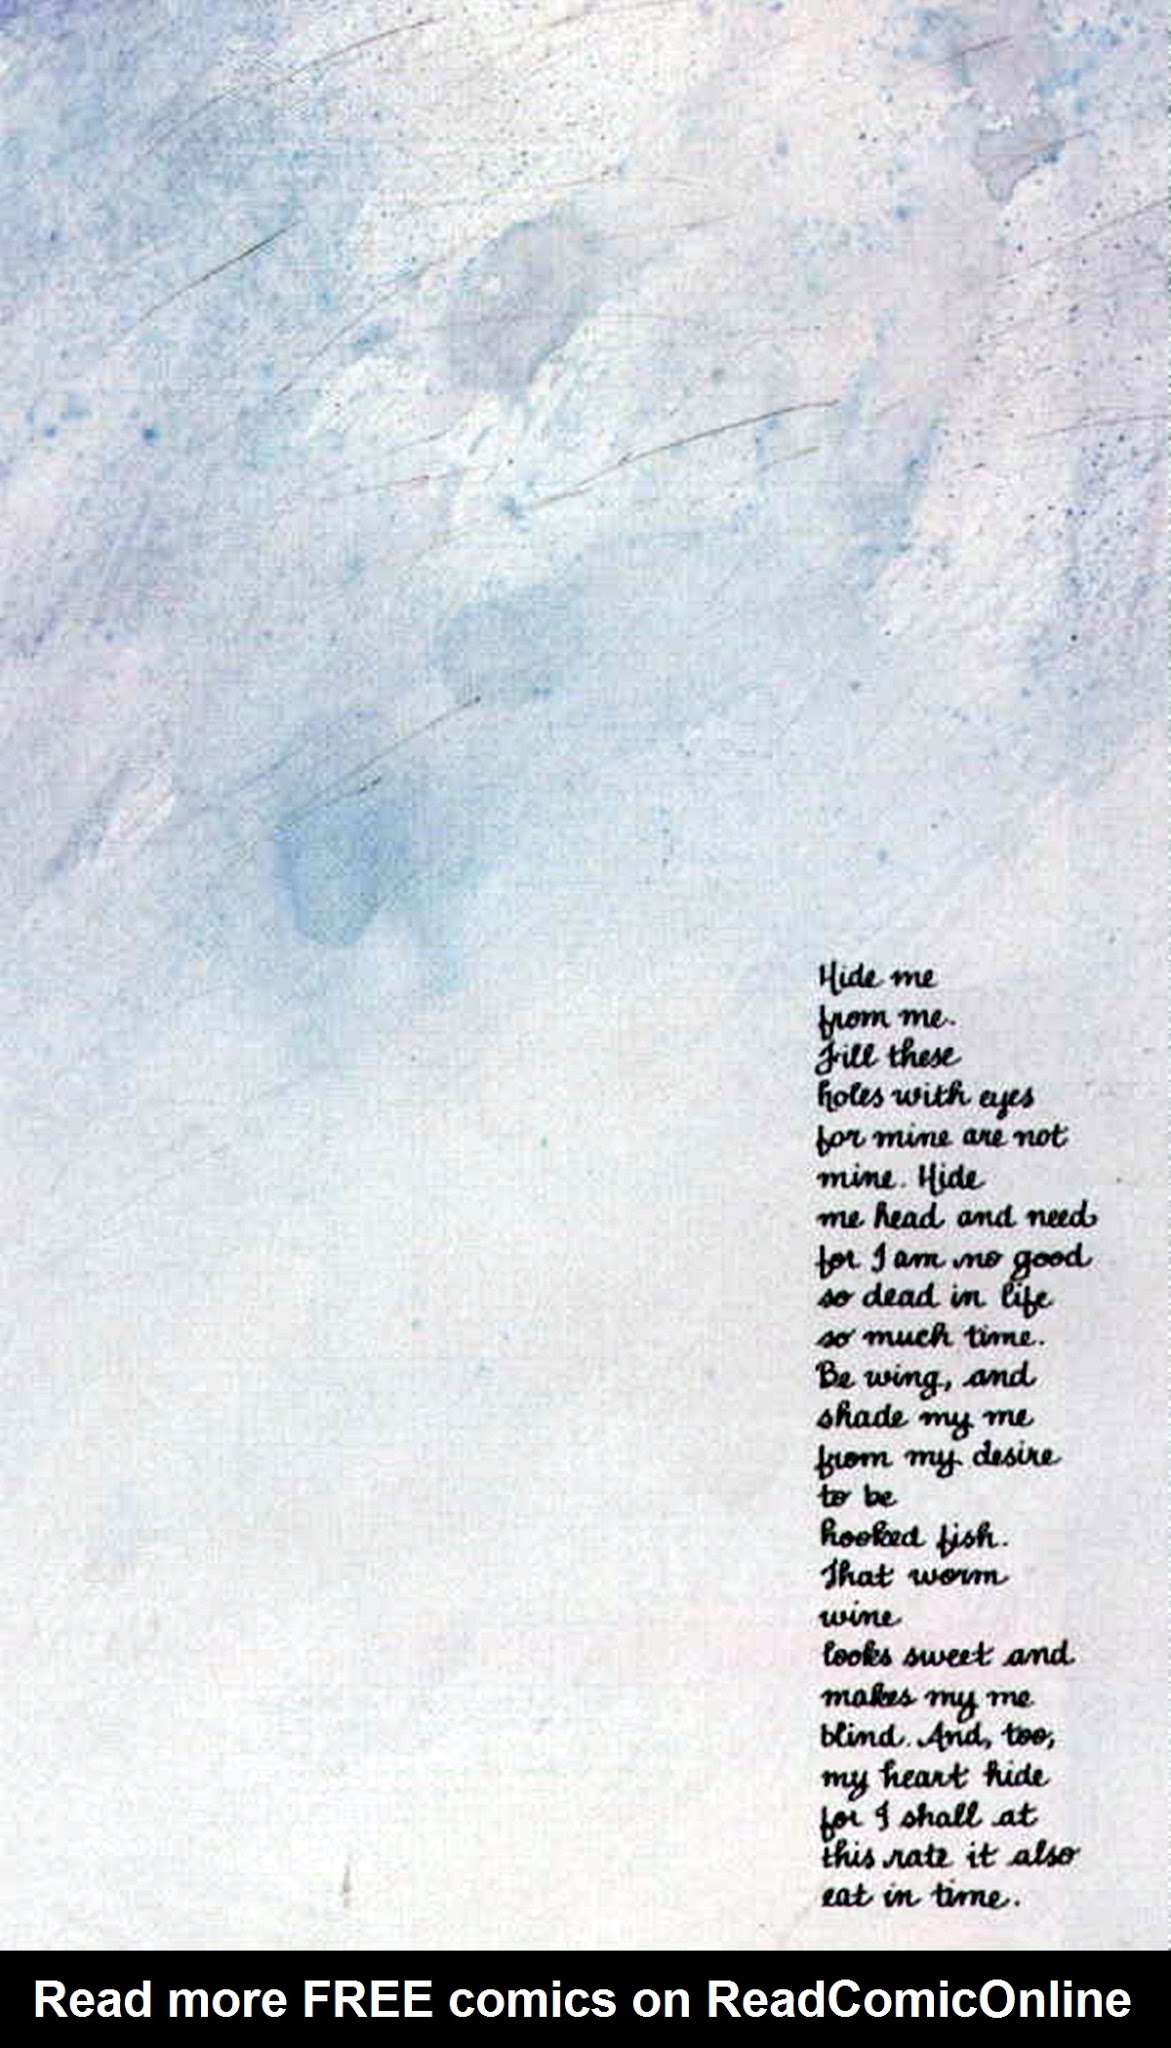 Hide me
from me.
Fill these
holes with eyes
for mine are not
mine. Hide
me head and need
for I am no good
so dead in life
so much time.
Be wing, and
shade my me
from my desire
to be
hooked fish.
That worm
wine
looks sweet and
makes my me
blind. And, too,
my heart hide
for I shall at
this rate it also
eat in time.
Read more FREE comics on ReadComicOnline